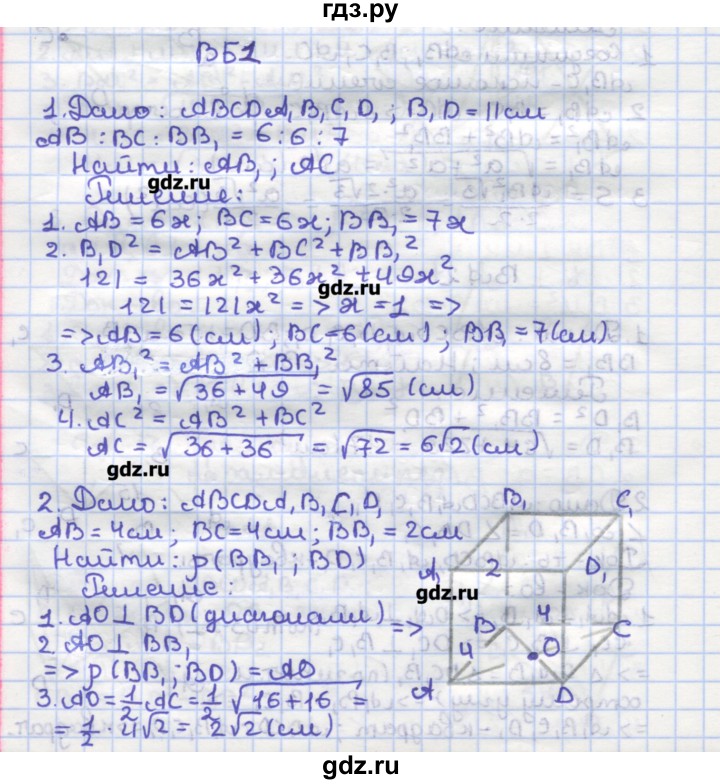 гдз.ру
ВБ1
1. Дано: ABCDA₁B₁C₁D₁; B₁D = 11см
AB : BC : BB₁ = 6 : 6 : 7
Найти: AB₁; AC
gdz.ru
Решение:
1. AB = 6x; BC = 6x; BB₁ = 7x
2. B₁D² = AB² + BC² + BB₁²
121 = 36x² + 36x² + 49x²
gdz.ru
121 = 121x² => x = 1 =>
=> AB = 6(см); BC = 6(см); BB₁ = 7(см)
3. AB₁² = AB² + BB₁²
AB₁ = √36 + 49 = √85 (см)
4. AC² = AB² + BC²
AC = √36 + 36 = √72 = 6√2 (см)
gdz.ru
2. Дано: ABCDA₁B₁C₁D₁
AB = 4см; BC = 4см; BB₁ = 2см
Найти: p(BB₁; BD)
Решение:
1. AO ⊥ BD (диагонали) =>
2. AO ⊥ BB₁
=> p(BB₁; BD) = AO
3. AO = 1/2 AC = 1/2 √16 + 16 =
= 1/2 · 4√2 = 2√2 (см)
B₁ C₁
A₁ 2 D₁
gdz.ru
4
B O C
4
A D
gdz.ru